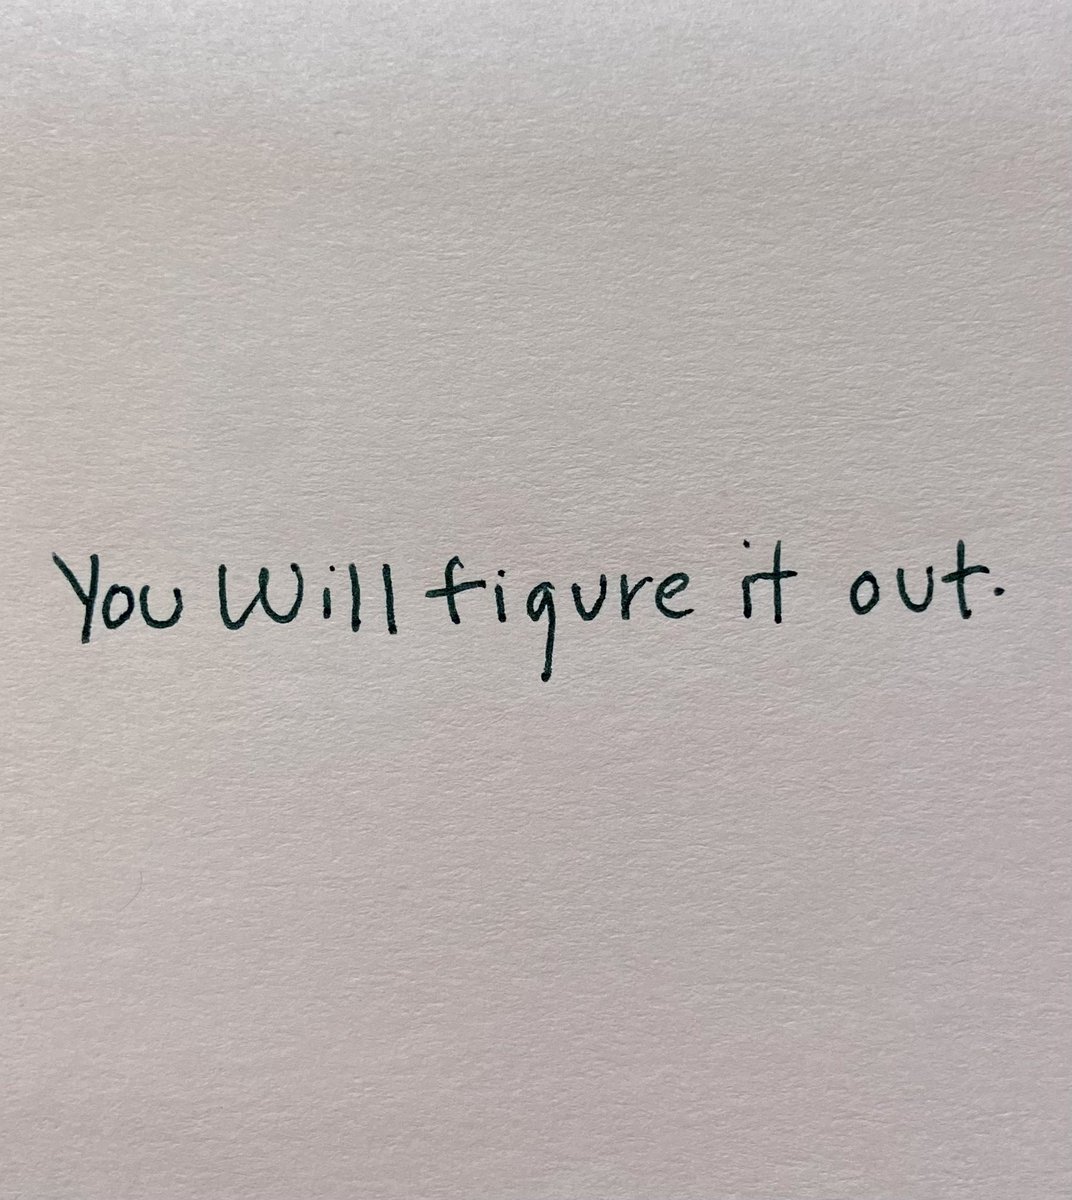 You Will figure it out.